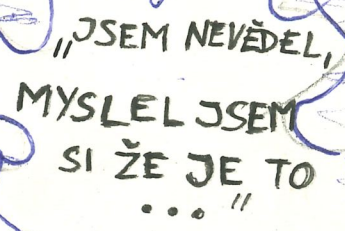 „JSEM NEVĚDEL,
MYSLEL JSEM
SI ŽE JE TO
..."